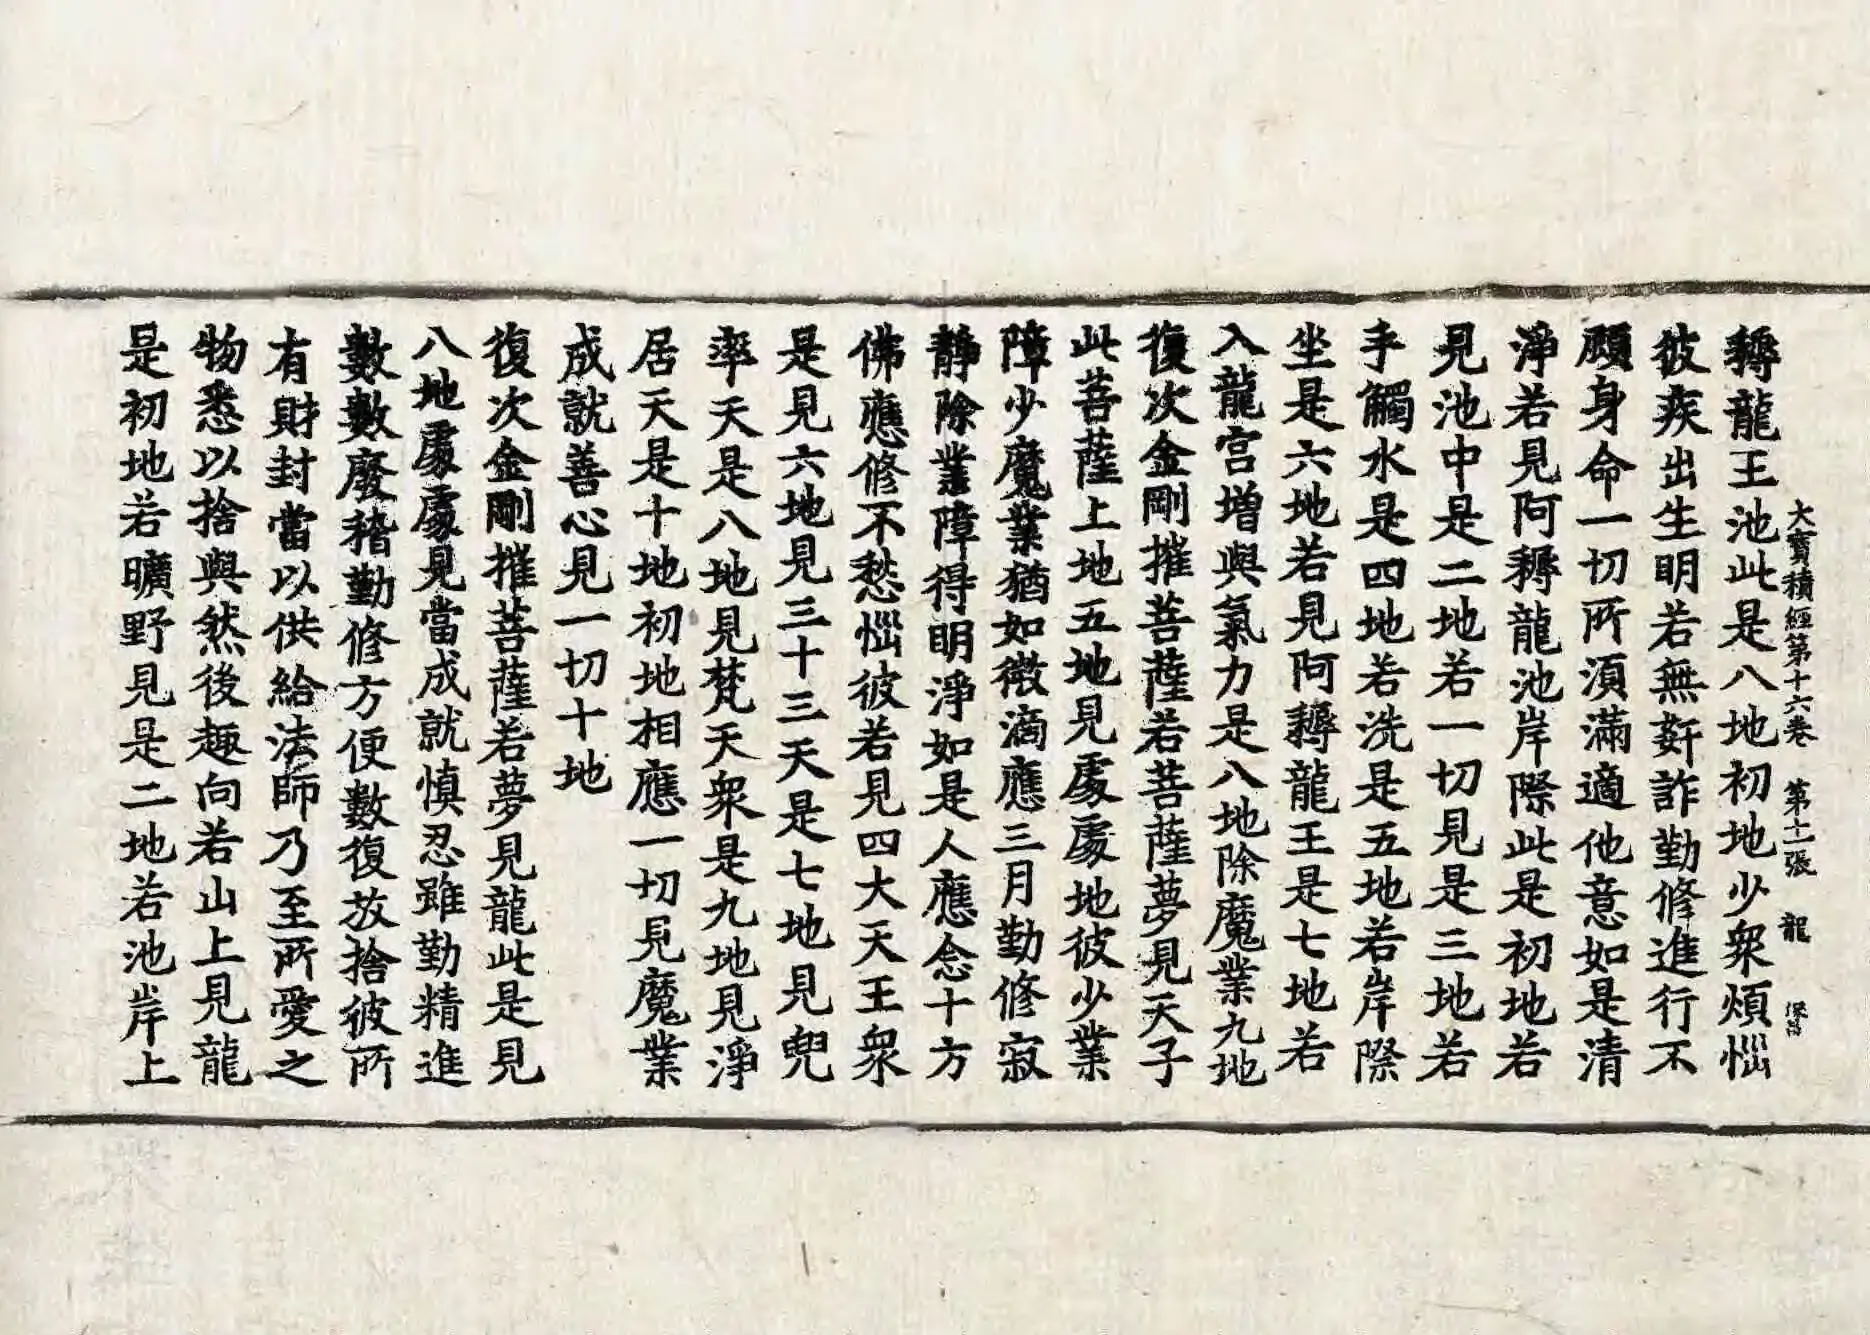 大寶積經第十六卷 第十一張 龍
耨龍王池此是八地初地少衆煩惱
彼疾出生明若無姧詐勤修進行不
顧身命一切所湏滿適他意如是清
淨若見阿耨龍池岸際此是初地若
見池中是二地若一切見是三地若
手觸水是四地若洗是五地若岸際
坐是六地若見阿耨龍王是七地若
入龍宮增與氣力是八地除魔業九地
復次金剛摧菩薩若菩薩夢見天子
此菩薩上地五地見處處地彼少業
障少魔業猶如微滴應三月勤修寂
靜除業障得明淨如是人應念十方
佛應修不愁惱彼若見四大天王衆
是見六地見三十三天是七地見兜
率天是八地見梵天衆是九地見淨
居天是十地初地相應一切見魔業
成就善心見一切十地
復次金剛摧菩薩若夢見龍此是見
八地處處見當成就慎忍雖勤精進
數數廢稽勤修方便數復放捨彼所
有財封當以供給法師乃至所愛之
物悉以捨與然後趣向若山上見龍
是初地若曠野見是二地若池岸上